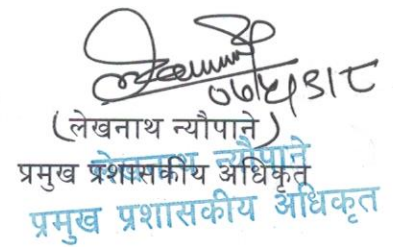 (लेखनाथ न्यौपाने)
प्रमुख प्रशासकीय अधिकृत
लेखनाथ न्यौपाने
प्रमुख प्रशासकीय अधिकृत